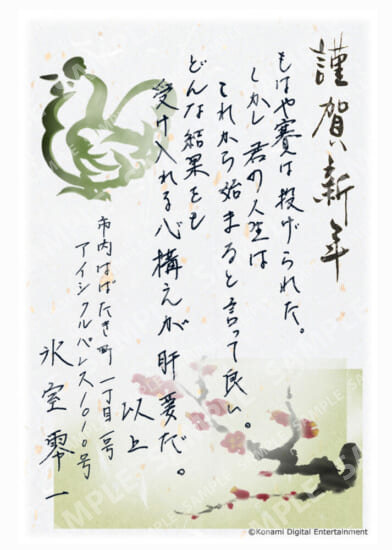 謹賀新年
もはや賽は投げられた。
しかし君の人生は
これから始まると言って良い。
どんな結果をも
受け入れる心構えが肝要だ。
以上
市内はばたき町一丁目一号
アイシクルパレス1010号
氷室零一
SAMPLE SAMPLE SAMPLE
©Konami Digital Entertainment